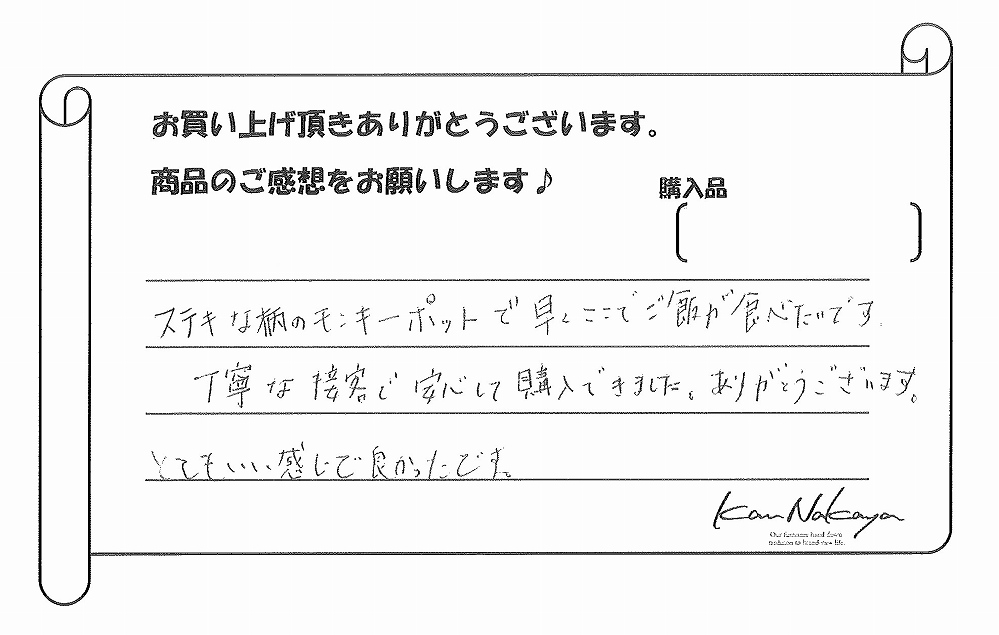 お買い上げ頂きありがとうございます。
商品のご感想をお願いします♪
購入品
ステキな柄のモンキーポットで早くここでご飯が食べたいです.
丁寧な接客で安心して購入できました。ありがとうございます。
とてもいい感じで良かったです。
Kan Nakaya
Our furniture hand down
tradition to brand-new life.